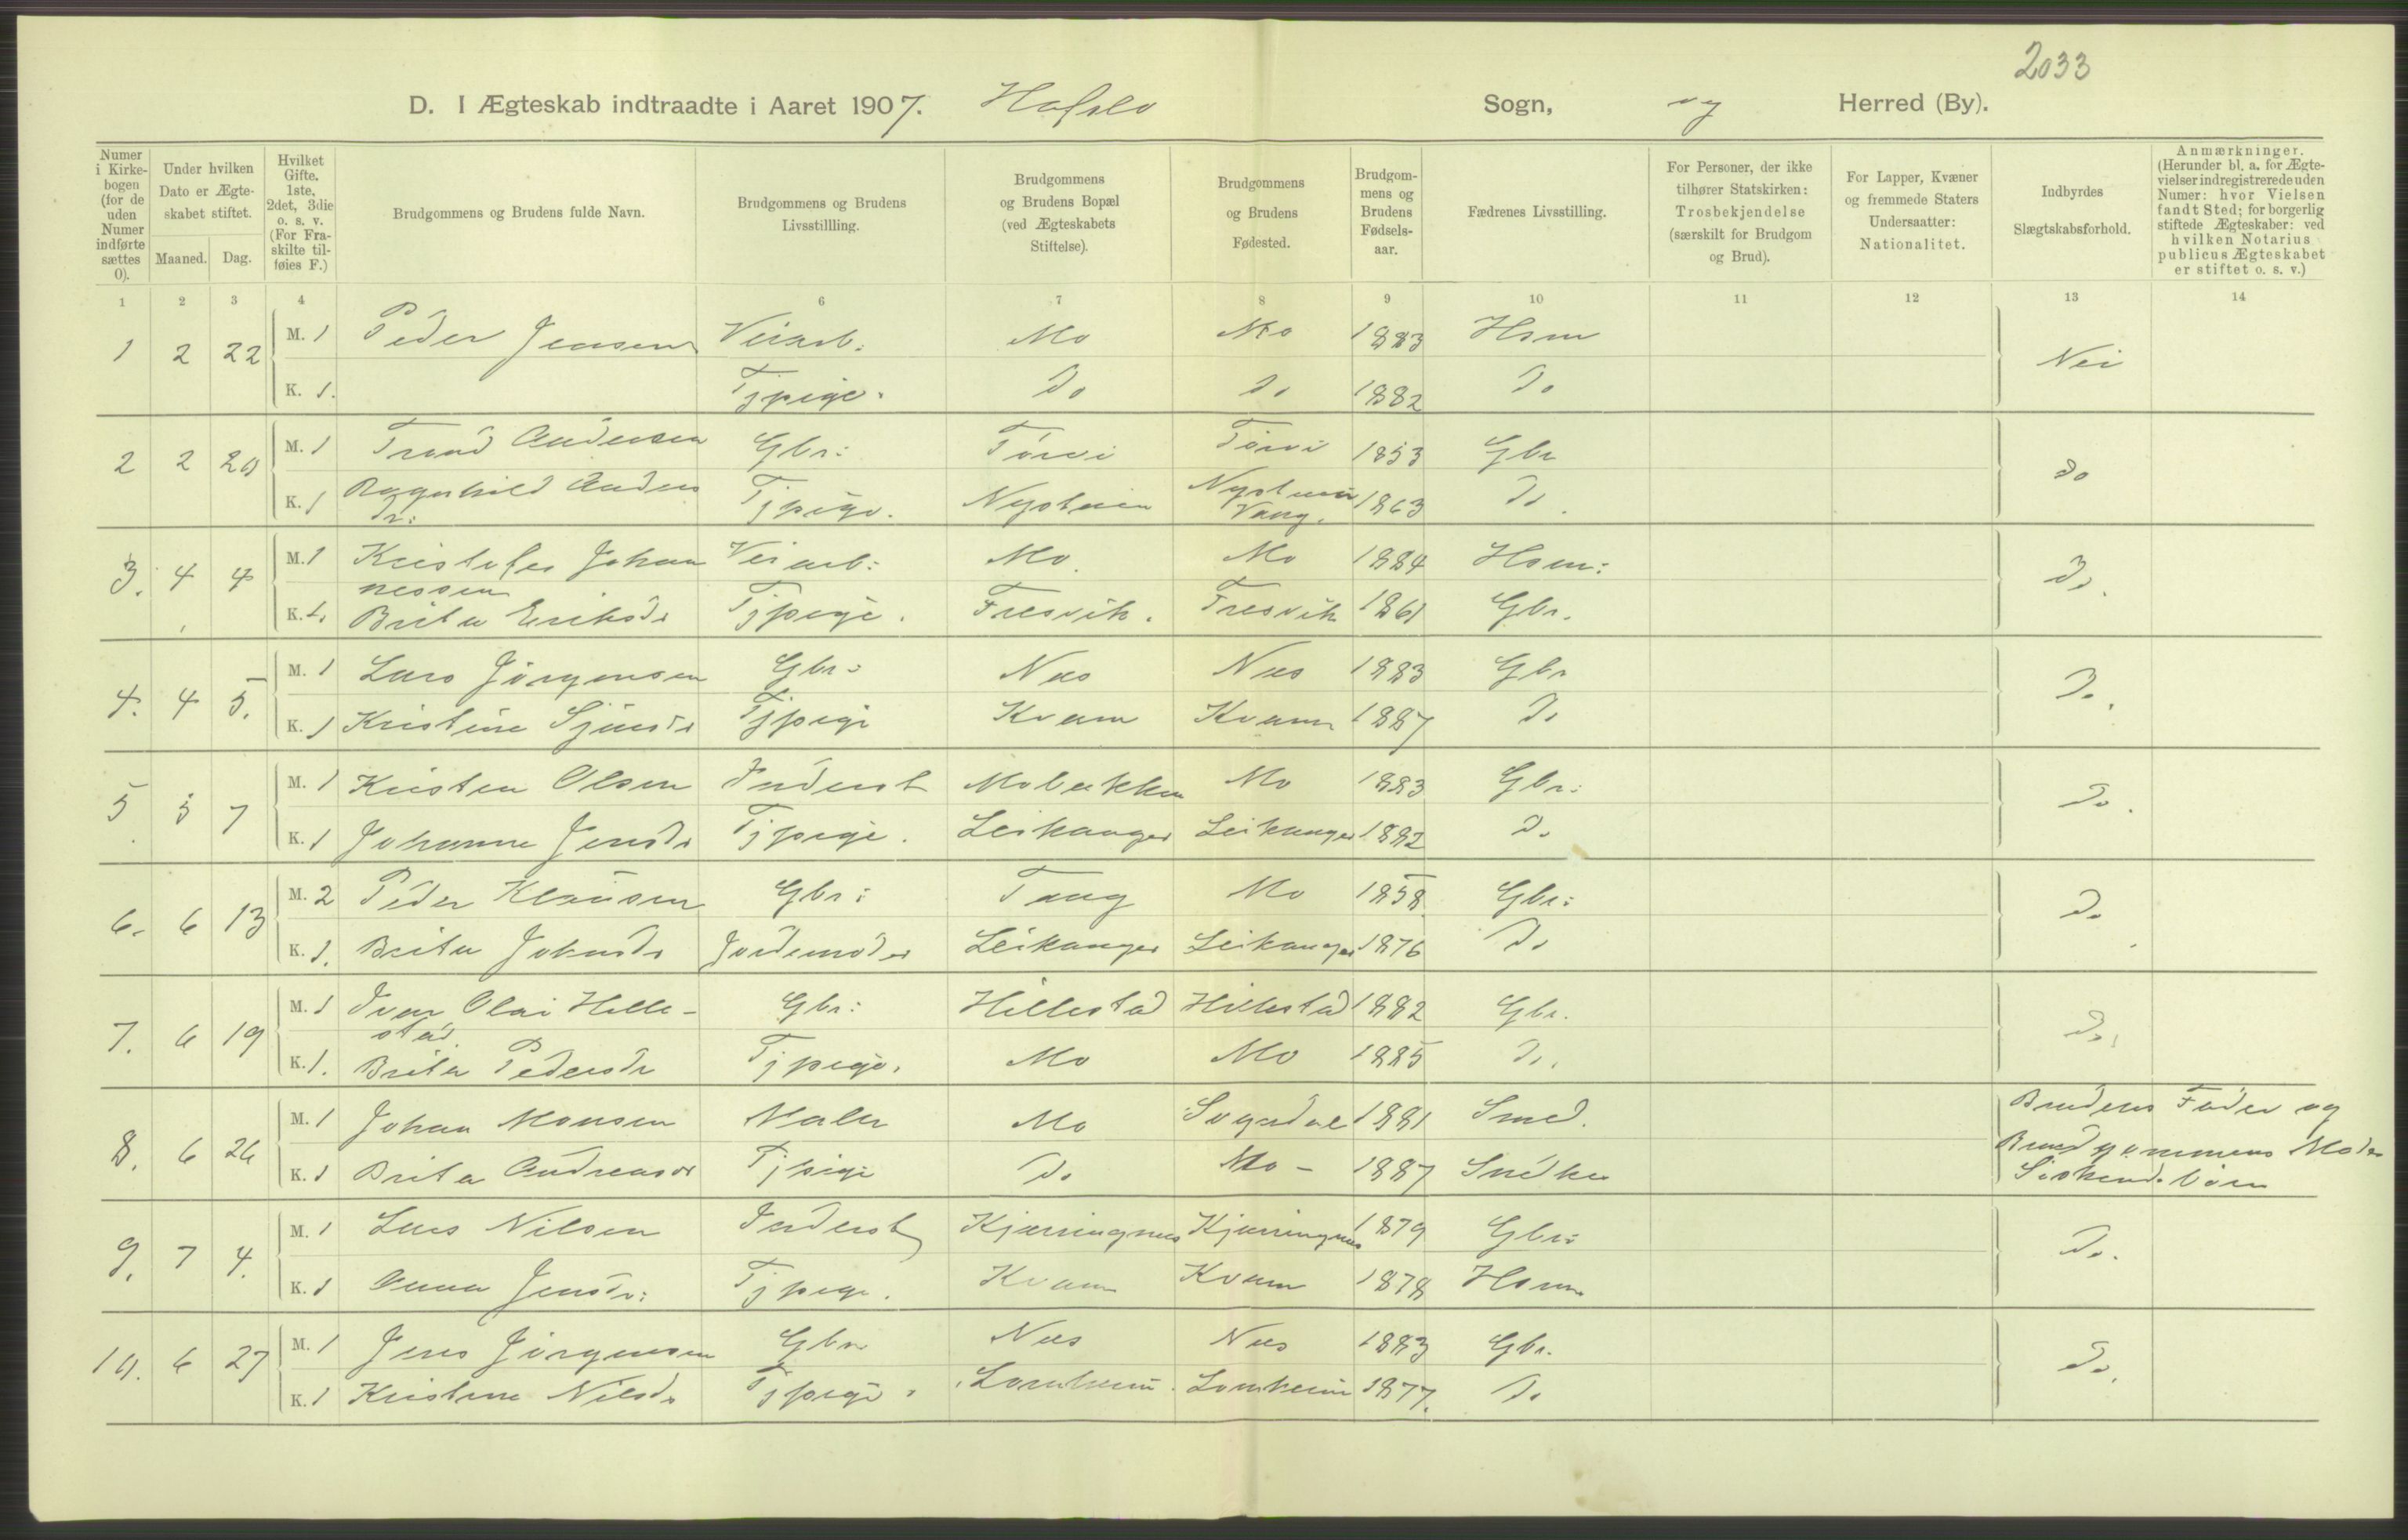 2033
D. I Ægteskab indtraadte i Aaret 1907. Hafslo Sogn, og Herred (By).
Numer i Kirkebogen (for de uden Numer indførte sættes 0).
Under hvilken Dato er Ægteskabet stiftet.
Maaned. Dag.
Hvilket Gifte. 1ste, 2det, 3die o. s. v. (For Fraskilte tilføies F.)
Brudgommens og Brudens fulde Navn.
Brudgommens og Brudens Livsstillling.
Brudgommens og Brudens Bopæl (ved Ægteskabets Stiftelse).
Brudgommens og Brudens Fødested.
Brudgommens og Brudens Fødselsaar.
Fædrenes Livsstilling.
For Personer, der ikke tilhører Statskirken: Trosbekjendelse (særskilt for Brudgom og Brud).
For Lapper, Kvæner og fremmede Staters Undersaatter: Nationalitet.
Indbyrdes Slægtskabsforhold.
Anmærkninger. (Herunder bl. a. for Ægtevielser indregistrerede uden Numer: hvor Vielsen fandt Sted; for borgerlig stiftede Ægteskaber: ved hvilken Notarius publicus Ægteskabet er stiftet o. s. v.)
1 2 3 4 6 7 8 9 10 11 12 13 14
1 2 22 M. 1 Peder Jensen Veiarb: Mo Mo 1883 Hsm Nei
K. 1. Tjpige. Do Do 1882 Do
2 2 20 M. 1 Trond Andersen Gbr: Tørvi Tørvi 1853 Gbr Do
K. 1 Ragnhild Anders Tjpige. Nystuen Nystuen 1863 Do.
dr: Vang.
3. 4 4 M. 1 Kristofer Johan Veiarb: Mo. Mo 1884 Hsm: Do.
nessen
K. 1. Brita Eriksdr Tjpige. Fresvik. Fresvik 1861 Gbr.
4. 4 5. M. 1 Lars Jørgensen Gbr: Nes Nes 1883 Gbr Do.
K. 1 Kristine Sjursdr Tjpige Kvam Kvam 1887 Do
5 5 7 M. 1 Kristen Olsen Inderst Mobakken Mo 1883 Gbr: Do.
K. 1 Johanne Jensdr Tjpige. Leikanger Leikanger 1882 Do
6. 6 13 M. 2 Peder Klausen Gbr: Tang Mo 1858. Gbr: Do.
K. 1. Brita Johnsdr Jordemoder Leikanger Leikanger 1876 Do
7. 6 19 M. 1 Iver Olai Hille- Gbr: Hillestad Hillestad 1882 Gbr. Do.
stad.
K. 1. Brita Pedersdr Tjpige. Mo Mo 1885 Do.
8. 6 26 M. 1 Johan Monsen Maler Mo Sogndal 1881 Smed. Brudens Fader og
Brudgommens Moder
K. 1 Brita Andreasdr Tjpige Do Mo - 1887 Snedker Søskendebørn
9. 7 4. M. 1 Lars Nilsen Inderst Kjærringnes Kjærringnes 1879 Gbr: Do.
K. 1 Anna Jensdr: Tjpige. Kvam Kvam 1878 Hsm.
10. 6 27 M. 1 Jens Jørgensen Gbr Nes Nes 1883 Gbr. Do.
K. 1 Kristine Nilsdr Tjpige. Lomheim Lomheim 1877. Do